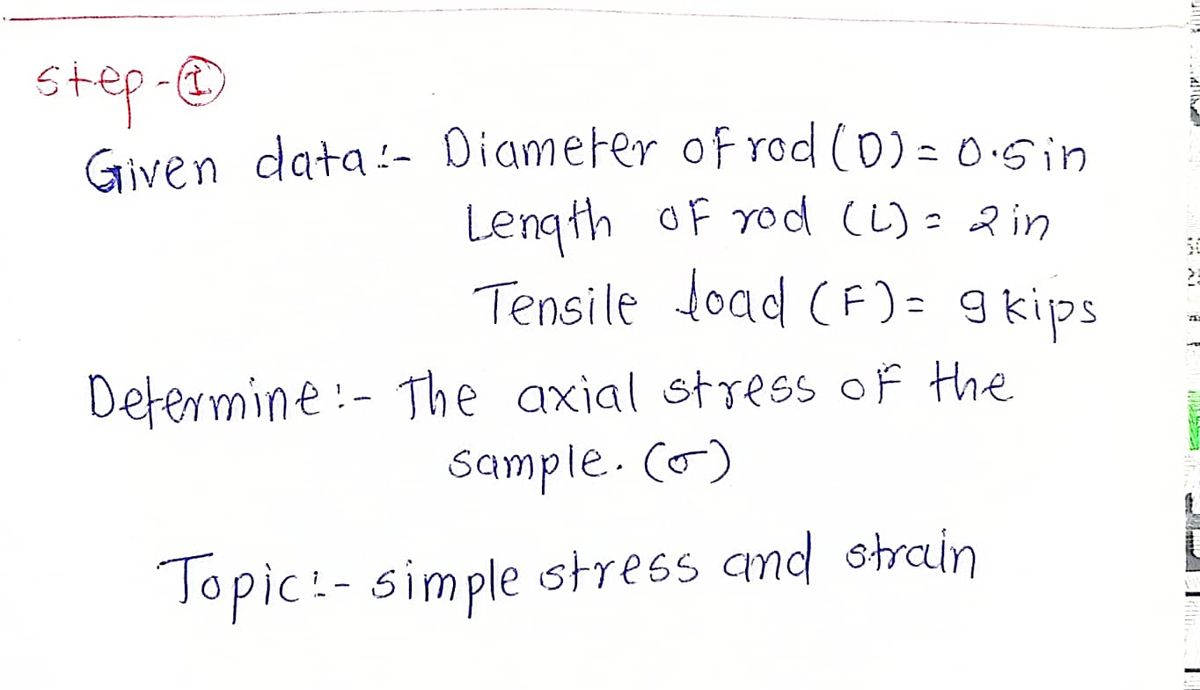 step-①
Given data:- Diameter of rod (D) = 0.5in
Length of rod (L) = 2 in
Tensile load (F) = 9 kips
Determine:- The axial stress of the
sample. (σ)
Topic:- simple stress and strain